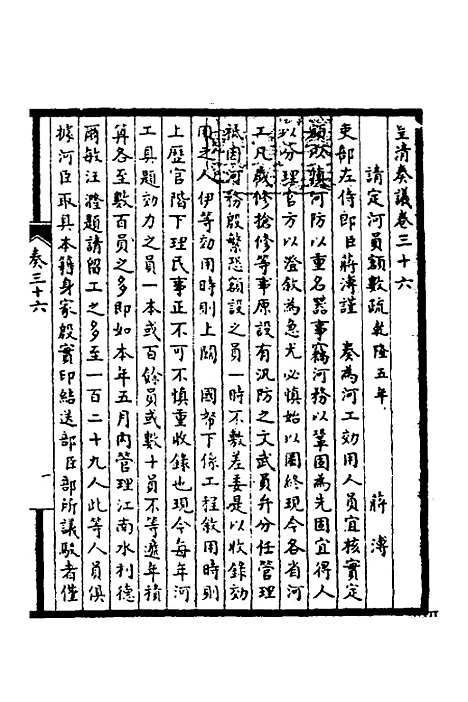 皇清奏議卷三十六
請定河員額數疏 乾隆五年 蔣溥
吏部左侍郎臣蔣溥謹 奏為河工効用人員宜核實定
額以鎮河防以重名器事竊河務以鞏固為先固宜得人
以分理官方以澄敘為急尤必慎始以圖終現今各省河
工凡歲修搶修等事原設有汛防之文武員弁分任管理
祗因河務殷繁恐額設之員一時不敷差委是以收錄効
用之人伊等効用時則上關 國帑下係工程敘用時則
上歷官階下理民事正不可不慎重收錄也現今每年河
工具題効力之員一本或百餘員或數十員不等遞年積
算各至數百員之多即如本年五月內管理江南水利德
爾敏汪漋題請留工之多至一百二十九人此等人員俱
據河臣取具本籍身家殷實印結送部臣部所議駁者僅
奏三十六
一